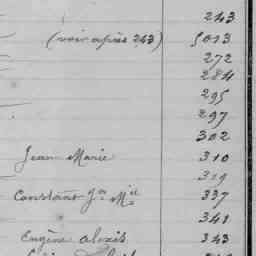 243
(voir après 243) 5013
272
284
295
297
302
Jean Marie 310
319
Constant Jn Mie 337
341
Eugène Alexis 343